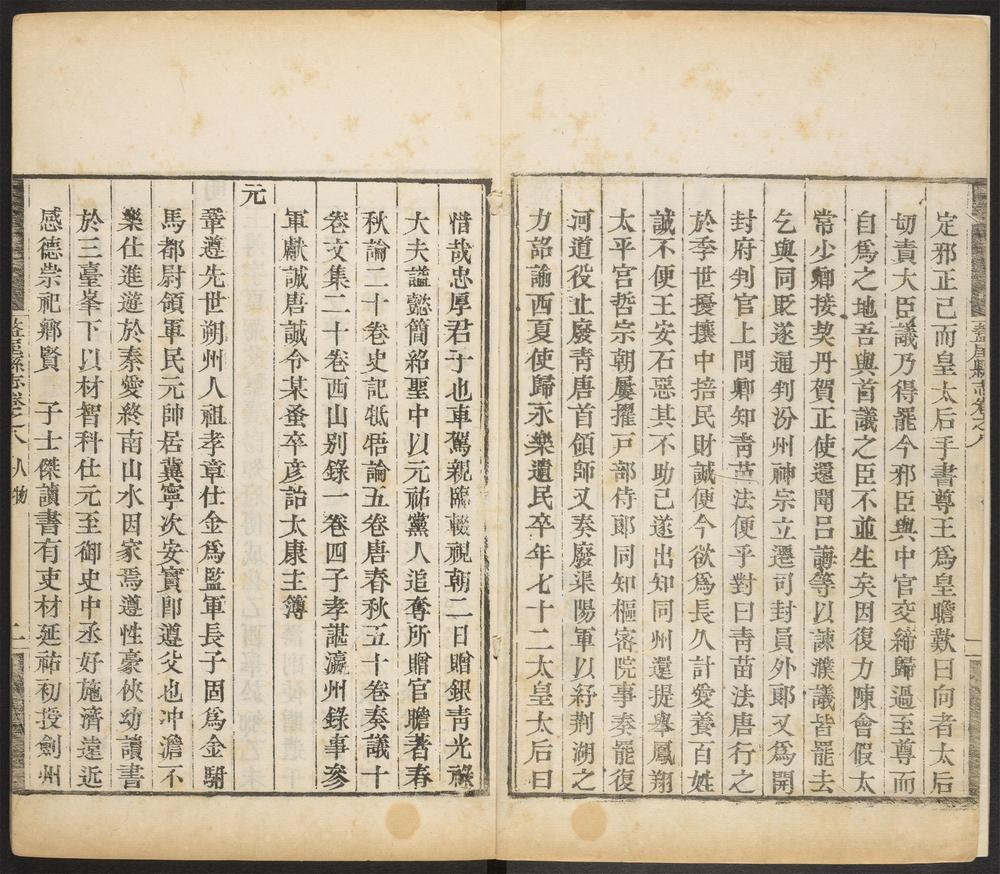 盩厔縣志卷之八
定邪正已而皇太后手書尊王爲皇瞻歎曰向者太后
切責大臣議乃得罷今邪臣與中官交締歸過至尊而
自爲之地吾與首議之臣不並生矣因復力陳會假太
常少卿接契丹賀正使還聞呂誨等以諫濮議皆罷去
乞與同貶遂通判汾州神宗立遷司封員外郎又爲開
封府判官上問卿知靑苗法便乎對曰靑苗法唐行之
於季世擾攘中掊民財誠便今欲爲長久計愛養百姓
誠不便王安石惡其不助已遂出知同州還提舉鳳翔
太平宮哲宗朝屢擢戸部侍郎同知樞密院事奏罷復
河道役止廢靑唐首領師又奏廢渠陽軍以紓荆湖之
力詔諭西夏使歸永樂遺民卒年七十二太皇太后曰
惜哉忠厚君子也車駕親臨輟視朝二日贈銀靑光祿
大夫謚懿簡紹聖中以元祐黨人追奪所贈官瞻著春
秋論二十卷史記牴牾論五卷唐春秋五十卷奏議十
卷文集二十卷西山别錄一卷四子孝諶瀛州錄事參
軍獻誠唐誠令某蚤卒彦詒太康主簿
元
鞏遵先世朔州人祖孝章仕金爲監軍長子固爲金駙
馬都尉領軍民元帥居冀寧次安實卽遵父也冲澹不
樂仕進遊於秦愛終南山水因家焉遵性豪俠幼讀書
於三臺峯下以材智科仕元至御史中丞好施濟遠近
感德祟祀鄉賢　子士傑讀書有吏材延祐初授劍州
盩厔縣志卷之八　人物　二